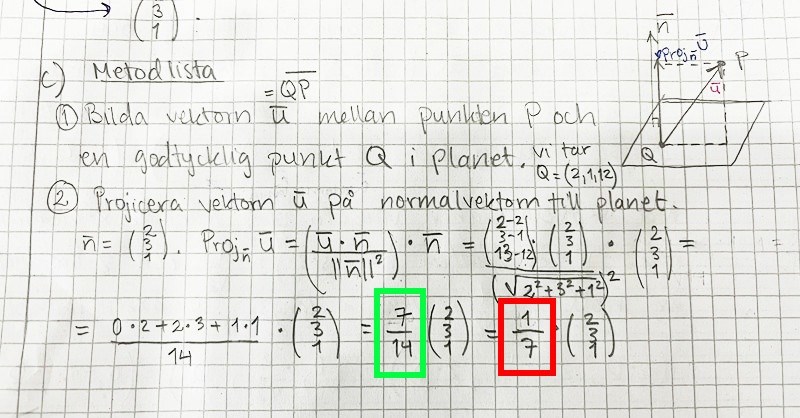 (3 1).
c) Metodlista
① Bilda vektorn ū = QP mellan punkten P och
en godtycklig punkt Q i planet. Vi tar Q = (2,1,12)
② Projicera vektorn ū på normalvektorn till planet.
n̄ = (2 3 1). Proj_n̄ ū = (ū · n̄ / ||n̄||²) · n̄ = (2-2 3-1 13-12) · (2 3 1) / (√2²+3²+1²)² · (2 3 1) =
= 0·2+2·3+1·1 / 14 · (2 3 1) = 7/14 (2 3 1) = 1/7 · (2 3 1)
n̄
Proj_n̄ ū
P
ū
Q